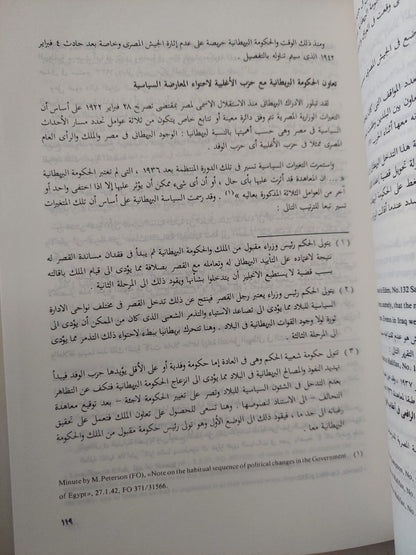 ومنذ ذلك الوقت والحكومة البريطانية حريصة على عدم إثارة الجيش المصرى وخاصة بعد حادث ٤ فبراير
١٩٤٢ الذى سيتم تناوله بالتفصيل .
تعاون الحكومة البريطانية مع حزب الأغلبية لاحتواء المعارضة السياسية
لقد تبلور الادراك البريطانى منذ الاستقلال الاسمى لمصر بمقتضى تصريح ٢٨ فبراير ١٩٢٢ على أساس أن
التغيرات الوزارية المصرية تتم وفق دائرة معينة أو تتابع خاص يتكون من ثلاثة عوامل تحدد مسار الأحداث
السياسية فى مصر وهى حسب أهميتها بالنسبة لبريطانيا : الوجود البريطانى فى مصر والملك والرأى العام
المصرى ممثلا فى حزب الأغلبية أى حزب الوفد .
واستمرت التغيرات السياسية تسير فى تلك الدورة المنتظمة بعد ١٩٣٦ ، التى لم تعتبر الحكومة البريطانية
« ... أن المعاهدة قد أثرت عليها بأى حال ، أو أن أى شىء يمكن أن يؤثر عليها إلا إذا اختفى واحد أو
آخر من العوامل الثلاثة المذكورة بعاليه » (١) . وقد رسمت السياسة البريطانية على أساس أن تلك المتغيرات
تسير تبعا للترتيب التالى :
(١) يتولى الحكم رئيس وزراء مقبول من الملك والحكومة البريطانية ثم يبدأ فى فقدان مساندة القصر له
نتيجة لاعتماده على التأييد البريطانى له وتعامله مع القصر بصلافة مما يؤدى الى قيام الملك باقالته
بسبب قضية لا يستطيع الانجليز أن يتدخلوا بشأنها ويقود ذلك الى المرحلة الثانية .
(٢) يتولى الحكم رئيس وزراء يعتبر رجل القصر فينتج عن ذلك تدخل القصر فى مختلف نواحى الادارة
السياسية للبلاد مما يؤدى الى تصاعد الاستياء والتذمر الشعبى الذى كان من الممكن أن يؤدى الى
ثورة لولا وجود القوات البريطانية فى البلاد . وهنا تتحرك بريطانيا ببطء لاحتواء ذلك التذمر مما يؤدى
الى المرحلة الثالثة .
(٣) تتولى حكومة شعبية الحكم وهى فى العادة إما حكومة وفدية أو على الأقل يؤيدها حزب الوفد فيبدأ
تهديد النفوذ والمصالح البريطانية فى البلاد مما يؤدى الى انزعاج الحكومة البريطانية فتكف عن التظاهر
بعدم التدخل فى الشئون السياسية للبلاد وتصر على تغيير الحكومة لاجئة – بعد توقيع معاهدة
التحالف – الى الاستناد لنصوصها ؛ وهنا تسعى للحصول على تعاون الملك فتعمل على تحقيق
رغباته الى حد ما ، فيقود ذلك الى الوضع الأول وهو تولى رئيس حكومة مقبول من الملك والحكومة
البريطانية معا .
(١)
Minute by M. Peterson (FO), «Note on the habitual sequence of political changes in the Government
of Egypt», 27.1.42. FO 371/31566.
١١٩